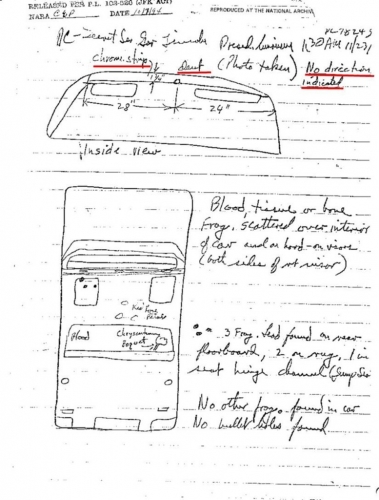 RELEASED PER P.L. 102-526 (JFK ACT)
NARA DATE
REPRODUCED AT THE NATIONAL ARCHIVES
Secret Ser
Chrome strip
Dent
(Photo taken)
No direction
indicated
28"
24"
Inside view
Blood, tissue or bone
frag. scattered over interior
of car and on hood - on visors
(both sides of rt visor)
Blood
Chrysanthemum
Boquet
3 frag. lead found on rear
floorboard, 2 on rug, 1 in
seat hinge channel
No other frags. found in car
No bullet holes found